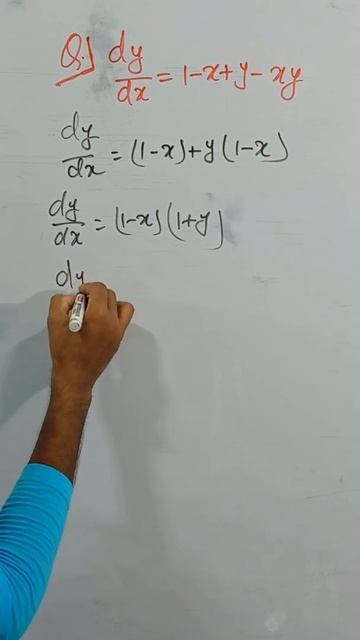 Q.) dy/dx = 1-x+y-xy
dy/dx = (1-x)+y(1-x)
dy/dx = (1-x)(1+y)
dy